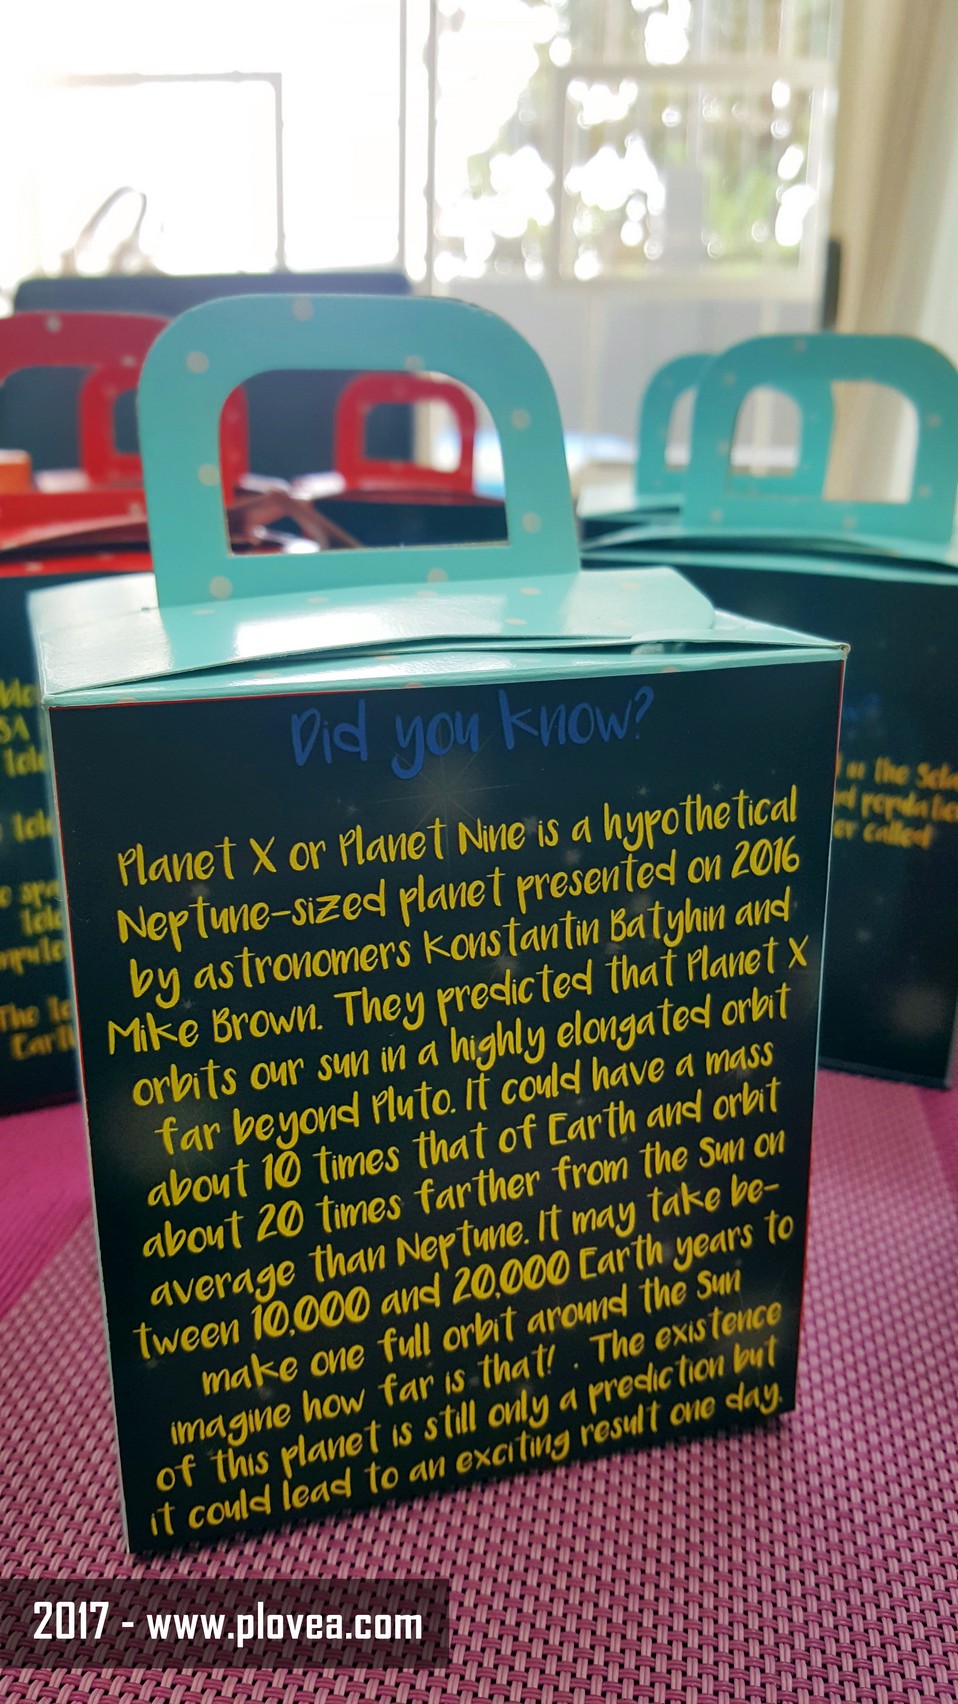 Did you know?
Planet X or Planet Nine is a hypothetical
Neptune-sized planet presented on 2016
by astronomers Konstantin Batyhin and
Mike Brown. They predicted that Planet X
orbits our sun in a highly elongated orbit
far beyond Pluto. It could have a mass
about 10 times that of Earth and orbit
about 20 times farther from the Sun on
average than Neptune. It may take be-
tween 10,000 and 20,000 Earth years to
make one full orbit around the Sun
imagine how far is that! . The existence
of this planet is still only a prediction but
it could lead to an exciting result one day.
in the Sola
er called
2017 - www.plovea.com